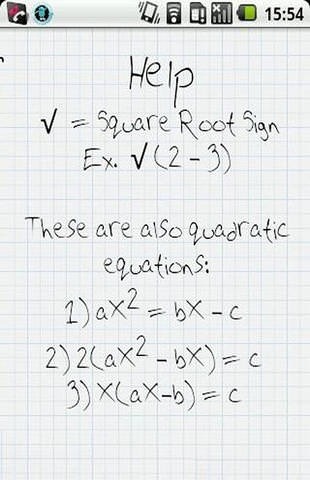 15:54
Help
√ = Square Root Sign
Ex. √(2-3)
These are also quadratic
equations:
1) ax² = bx - c
2) 2(ax² - bx) = c
3) x(ax-b) = c